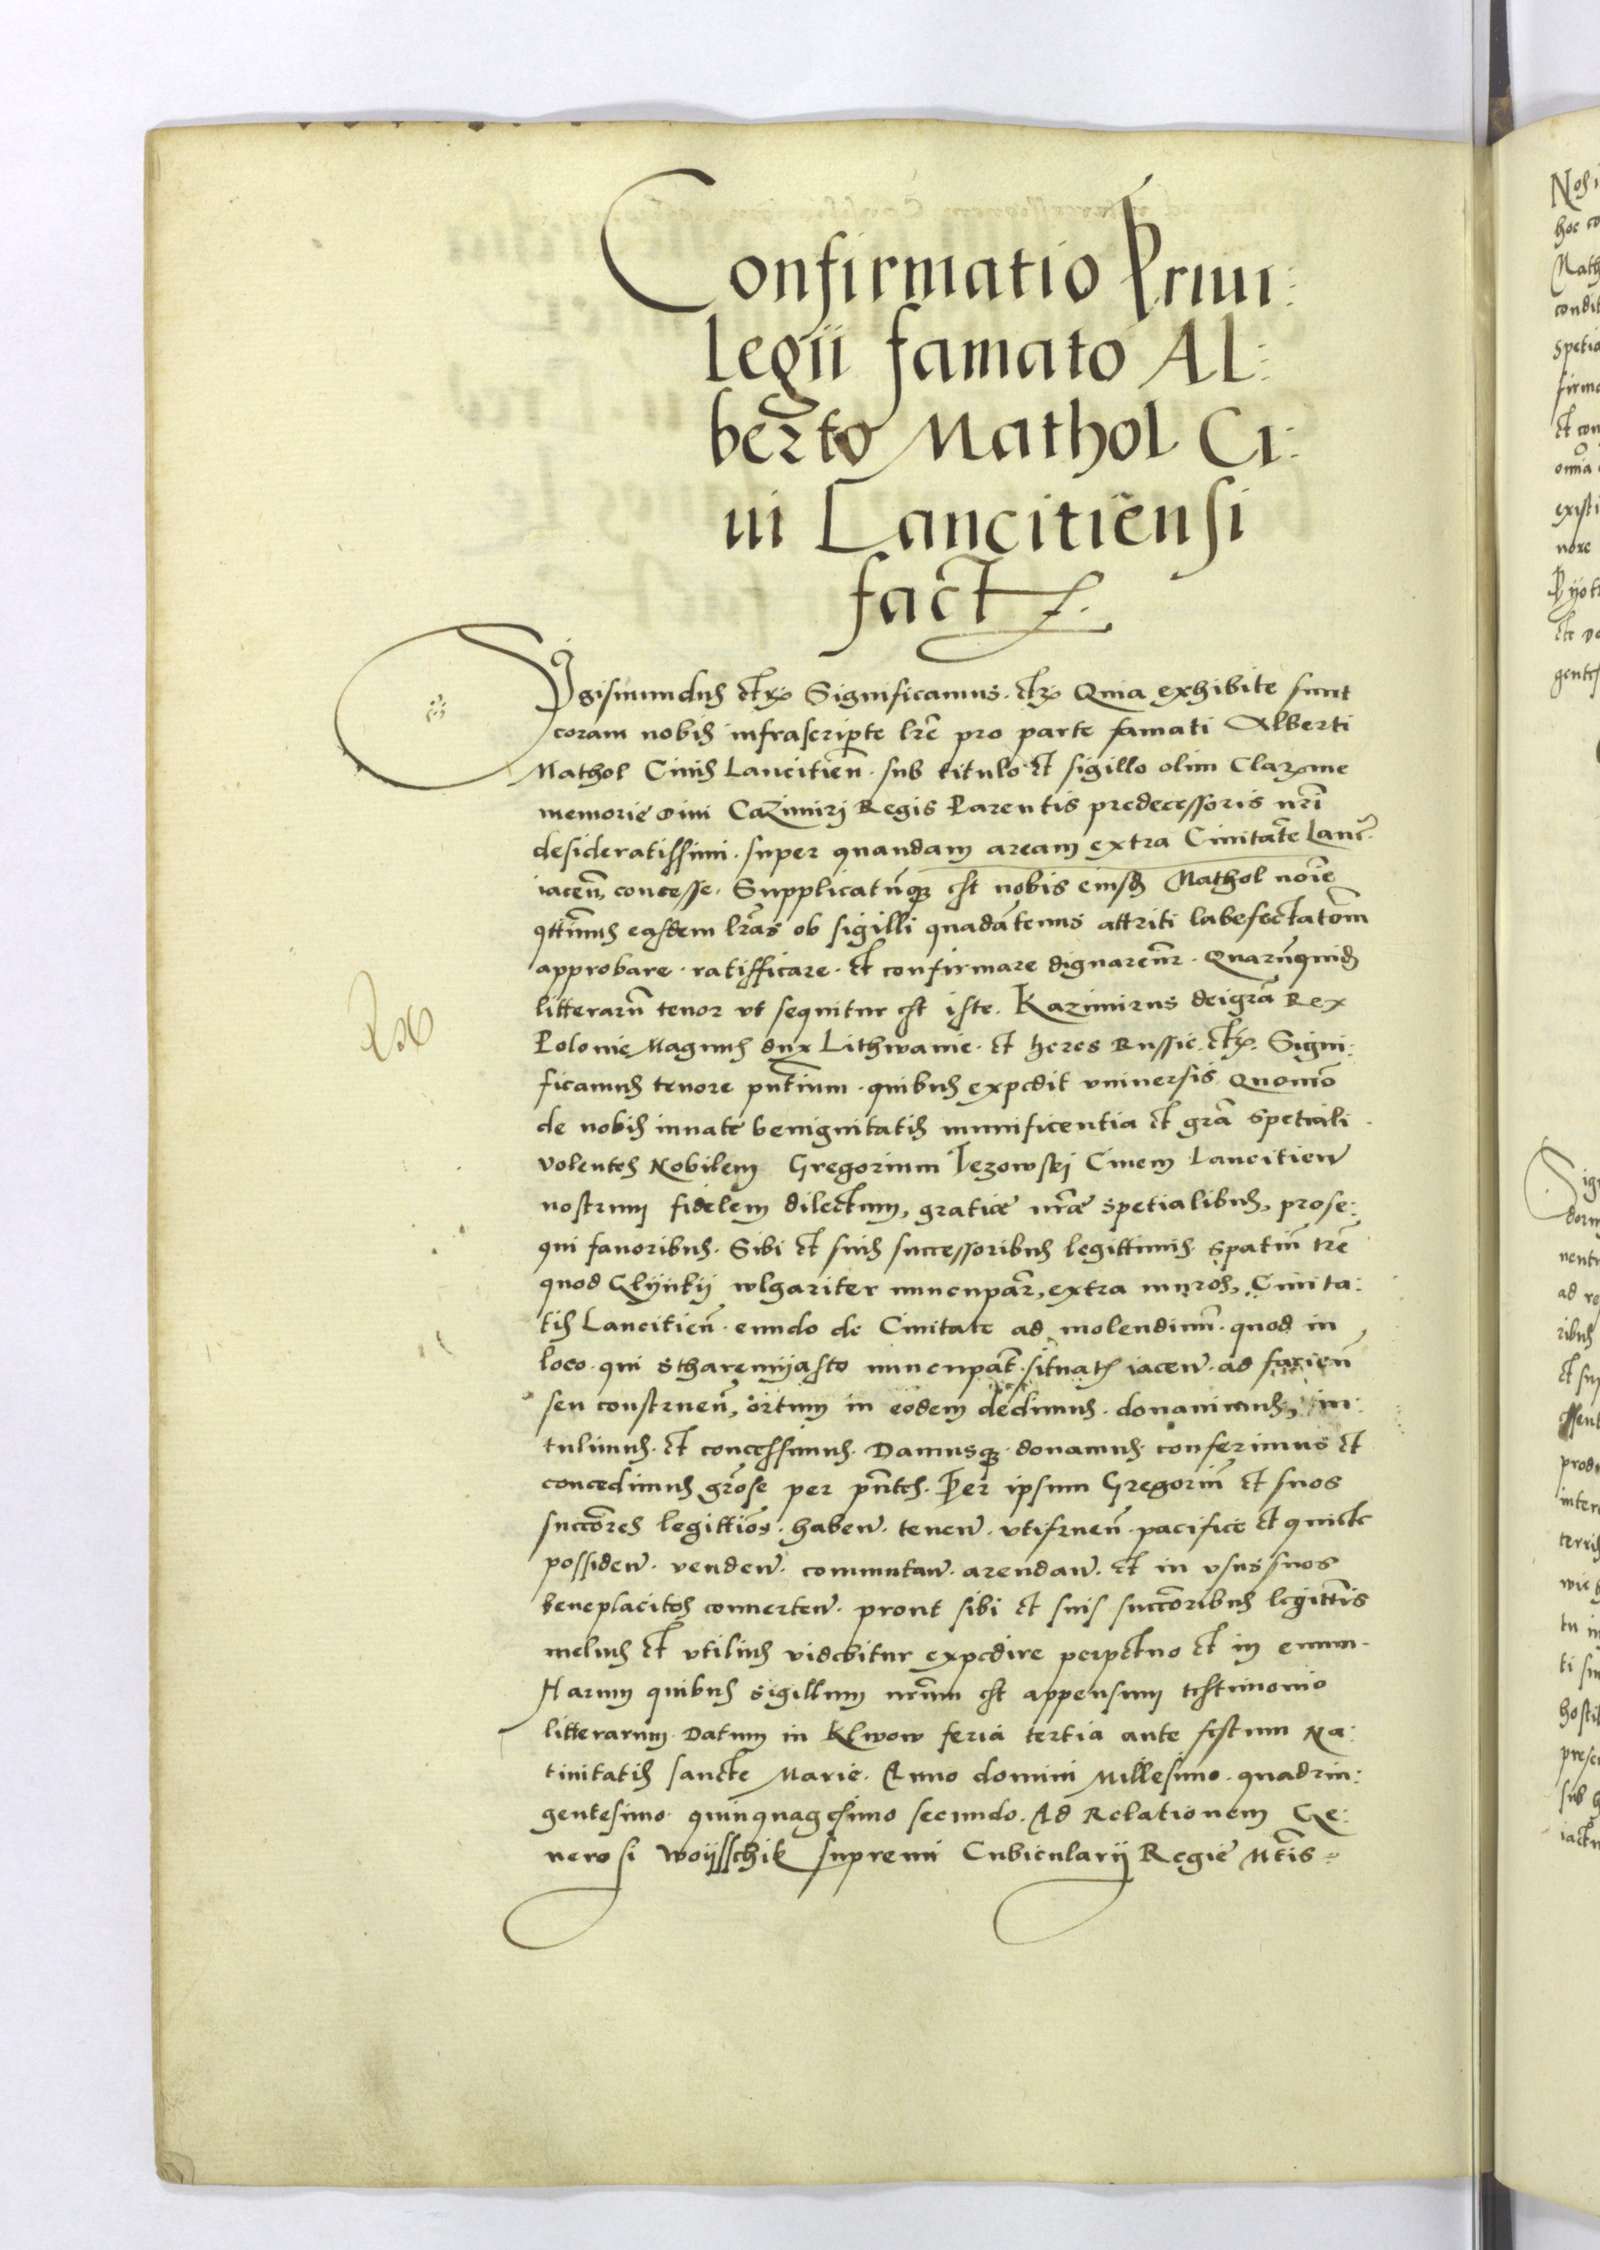 Confirmatio Priui:
legii famato Al:
berto Mathol Ci:
ui Lancitiensi
fact
Sigismundus etc. Significamus. etc. Quia exhibite sunt
coram nobis infrascripte lrẽ pro parte famati Alberti
Mathol Ciuis Lancitieñ. sub titulo et sigillo olim Clar̃me
memorie Diui Cazimirj Regis Parentis predecessoris nrĩ
desideratissimi. super quandam aream extra Ciuitatẽ Lanc̃.
iaceñ, concesse. Supplicatũq3 est nobis eiusđ Mathol noĩe
q̃ttinus easdem lrãs ob sigilli quadãtenus attriti labefectatoẽm
approbare. ratifficare. et confirmare dignarem̃r. Quarũquid3
litterarũ tenor vt sequitur est iste. Kazimirus dei grã Rex
Polonie Magnus dux Lithwanie. et heres Russie. etc. Signi:
ficamus tenore pñtium. quibus expedit vniuersis. Quomõ
de nobis innate benignitatis munificentia et grã spetiali
volentes Nobilem Gregorium Jezowskj Ciuem Lancitieñ
nostrum fidelem dilectum, gratiæ nrẽ spetialibus, prose:
qui fauoribus. Sibi et suis successoribus legittimis. spatiũ trẽ
quod Glijnkij wlgariter nuncupar̃, extra muros, Ciuita:
tis Lancitieñ. eundo de Ciuitate ad molendinũ. quod in
loco. qui stharemijasto nuncupat̃. situatũ iaceñ. ad facieñ
seu construeñ, ortum in eodem dedimus. donauimus, in:
tulimus. et concessimus. Damusq3 donamus. conferimus et
concedimus grõse per pñtes. Per ipsum Gregoriũ et suos
succõres legittiõs. habeñ. teneñ. vtifrueñ. pacifice et quiete
possideñ. vendeñ. commutañ. arendañ. et in vsus suos
beneplacitos conuerteñ. prout sibi et suis succõribus legittĩs
melius et vtilius videbitur expedire perpetuo et in euum.
Harum quibus sigillum nrũm est appensum testimonio
litterarum. Datum in Klwow feria tertia ante festum Na:
tiuitatis sancte Marie. Anno domini Millesimo. quadrin:
gentesimo. quinquagesimo secundo. Ad Relationem Ge:
nerosi Woijsschik supremi Cubicularij Regie Mtĩs